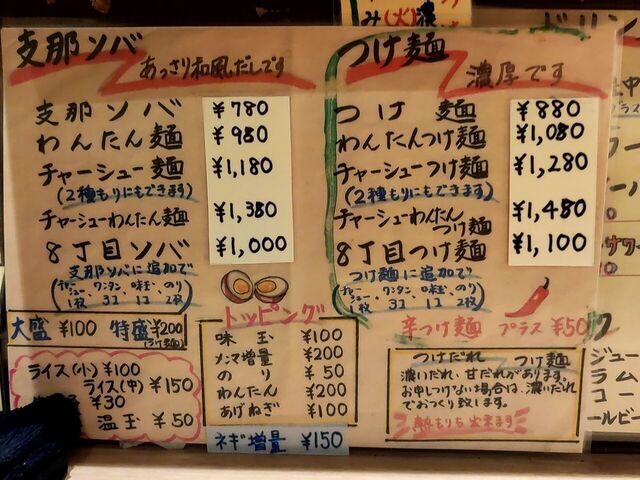 支那ソバ
あっさり和風だしです
支那ソバ ¥780
わんたん麺 ¥950
チャーシュー麺 ¥1,180
(2種もりにもできます)
チャーシューわんたん麺 ¥1,350
8丁目ソバ ¥1,000
支那ソバに追加で
(チャーシュー1枚、ワンタン3コ、味玉1コ、のり2枚)
大盛 ¥100 特盛 ¥200
ライス(小) ¥100
ライス(中) ¥150
¥30
温玉 ¥50
トッピング
味玉 ¥100
メンマ増量 ¥200
のり ¥50
わんたん ¥200
あげねぎ ¥100
ネギ増量 ¥150
つけ麺
濃厚です
つけ麺 ¥880
わんたんつけ麺 ¥1,050
チャーシューつけ麺 ¥1,280
(2種もりにもできます)
チャーシューわんたんつけ麺 ¥1,450
8丁目つけ麺 ¥1,100
つけ麺に追加で
(チャーシュー1枚、ワンタン3コ、味玉1コ、のり2枚)
辛つけ麺 プラス ¥50
つけだれ つけ麺
濃いだれ、甘だれがあります。
お申しつけない場合は、濃いだれ
でおつくり致します。
熱もりも出来ます
み(火)濃
ドリン